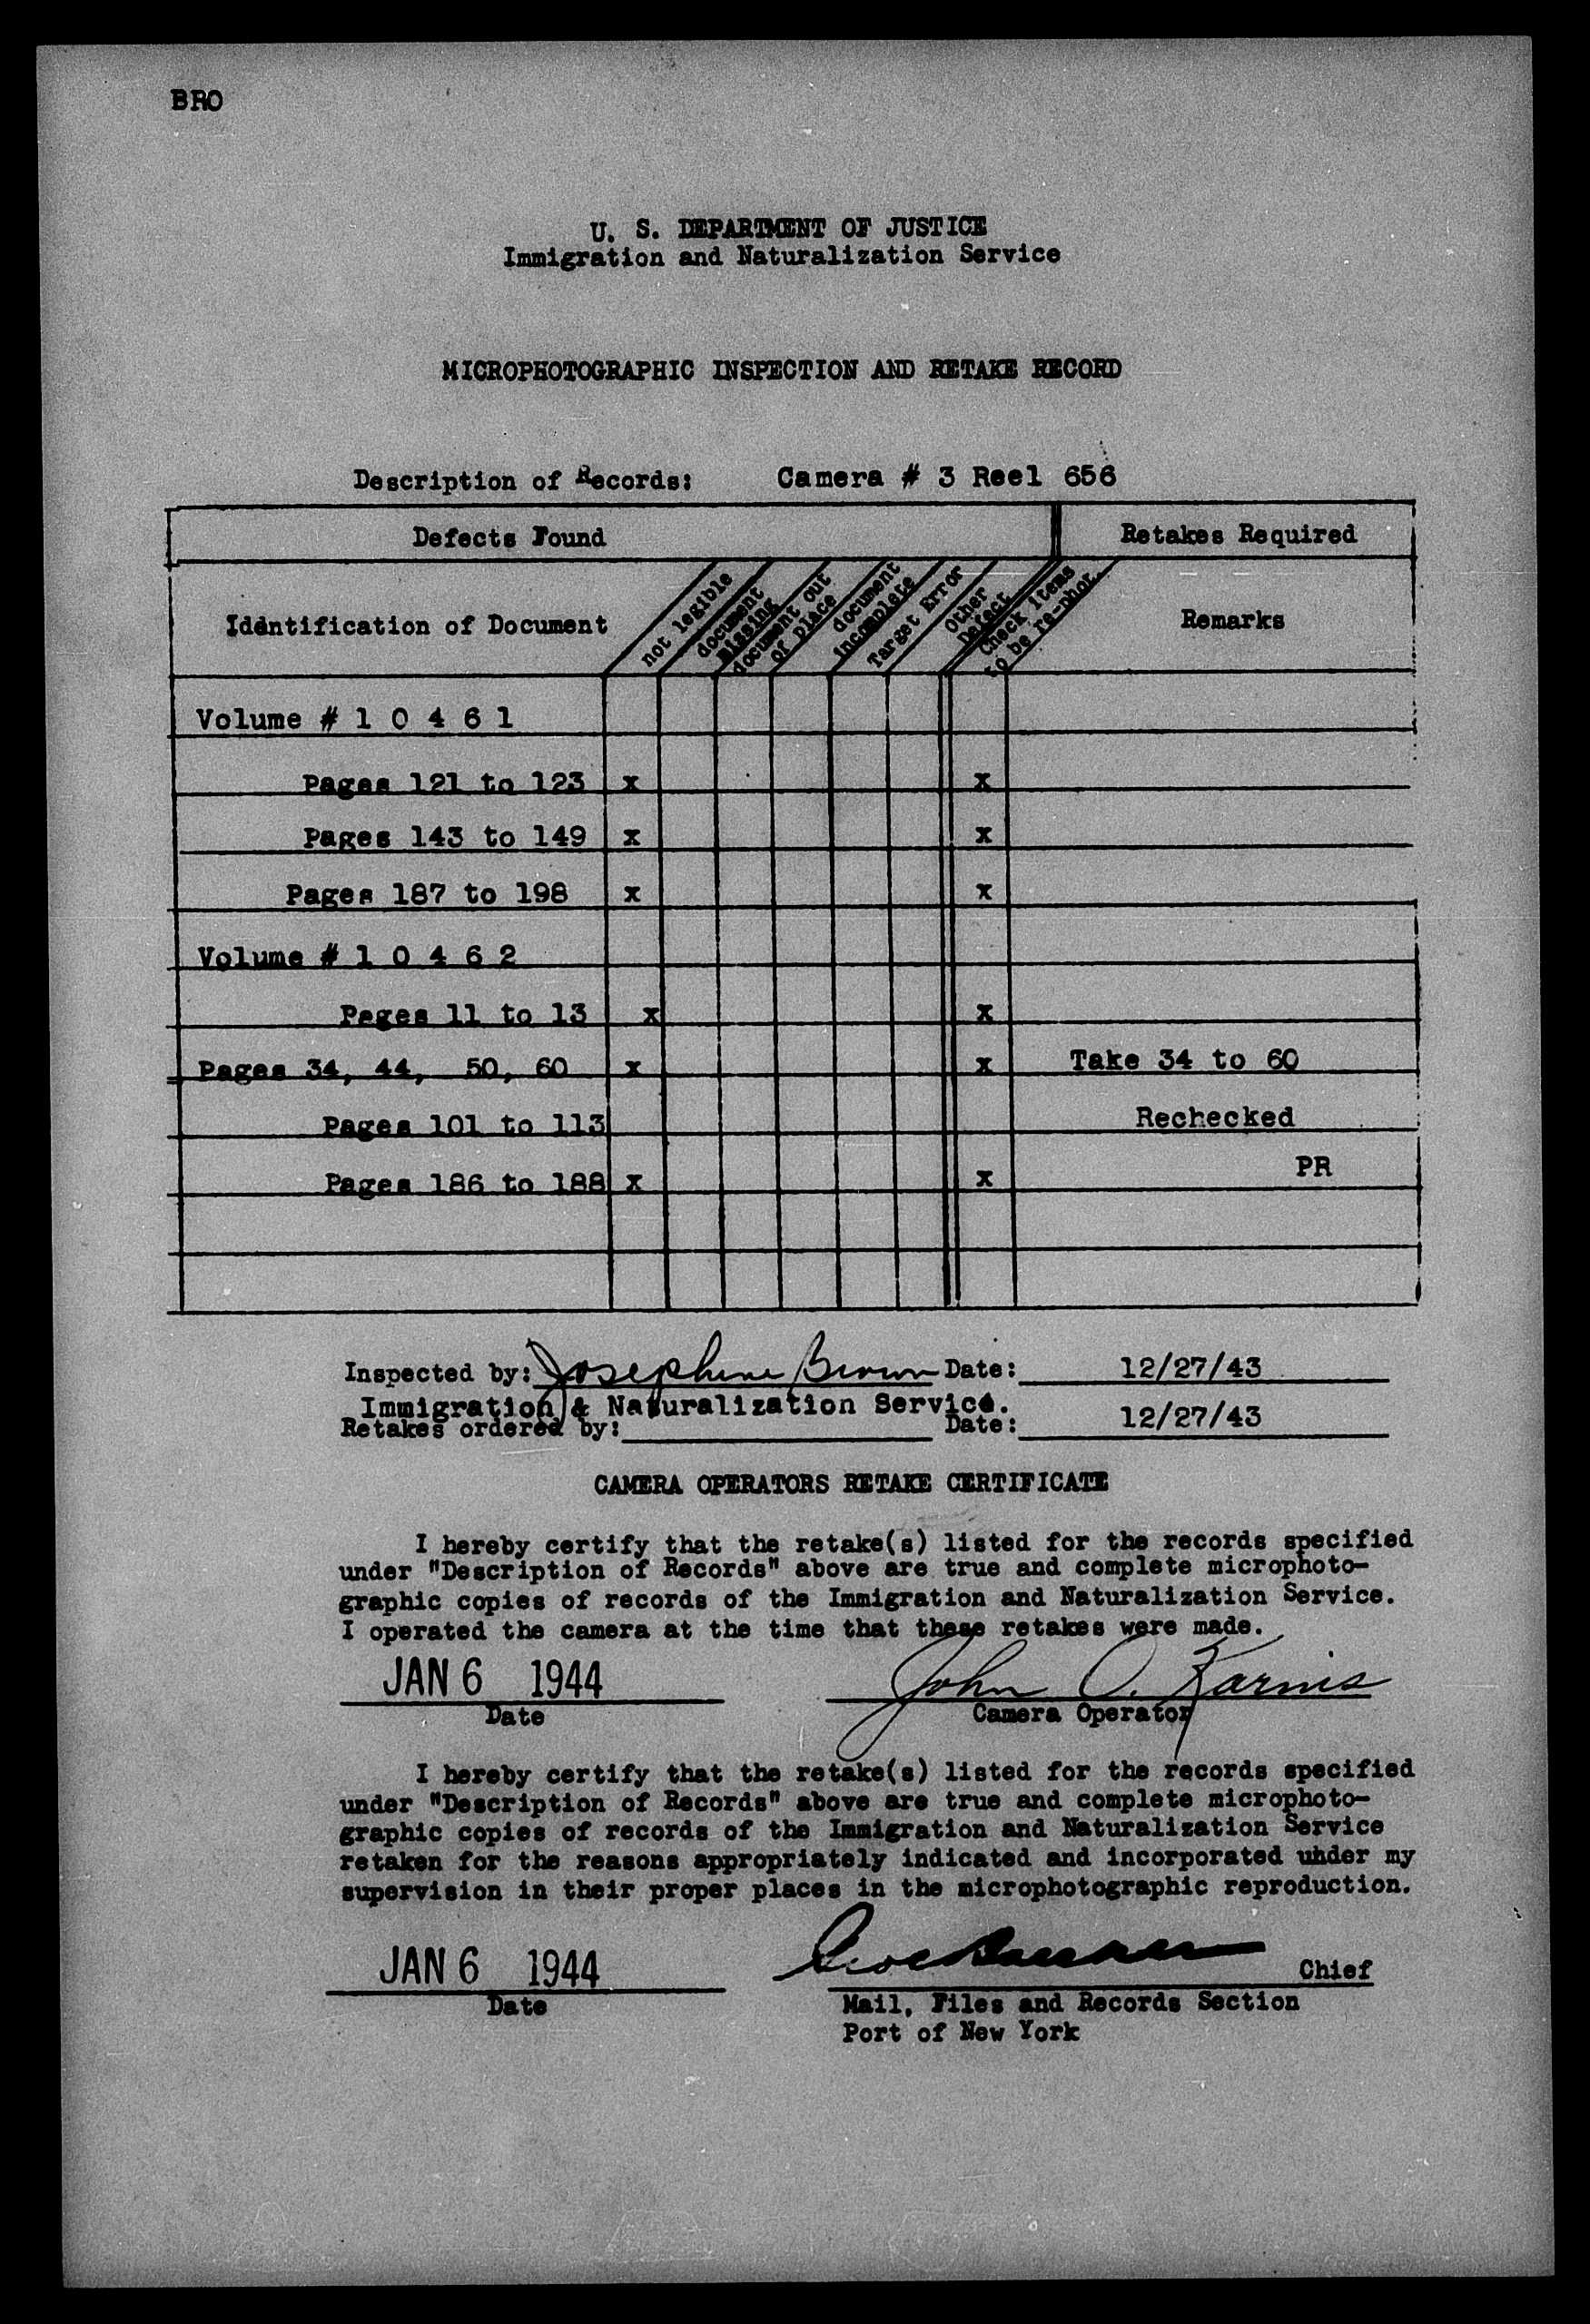 BRO
U. S. DEPARTMENT OF JUSTICE
Immigration and Naturalization Service
MICROPHOTOGRAPHIC INSPECTION AND RETAKE RECORD
Description of Records: Camera # 3 Reel 656
Defects Found Retakes Required
Identification of Document not legible document missing document out of place document incomplete Target Error Other Defect Check items to be re-phot. Remarks
Volume # 1 0 4 6 1
Pages 121 to 123 x x
Pages 143 to 149 x x
Pages 187 to 198 x x
Volume # 1 0 4 6 2
Pages 11 to 13 x x
Pages 34, 44, 50, 60 x x Take 34 to 60
Pages 101 to 113 Rechecked
Pages 186 to 188 x x PR
Inspected by: Josephine Brown Date: 12/27/43
Immigration & Naturalization Service.
Retakes ordered by: Date: 12/27/43
CAMERA OPERATORS RETAKE CERTIFICATE
I hereby certify that the retake(s) listed for the records specified
under "Description of Records" above are true and complete microphoto-
graphic copies of records of the Immigration and Naturalization Service.
I operated the camera at the time that these retakes were made.
JAN 6 1944 John O. Karnis
Date Camera Operator
I hereby certify that the retake(s) listed for the records specified
under "Description of Records" above are true and complete microphoto-
graphic copies of records of the Immigration and Naturalization Service
retaken for the reasons appropriately indicated and incorporated under my
supervision in their proper places in the microphotographic reproduction.
JAN 6 1944 Chief
Date Mail, Files and Records Section
Port of New York